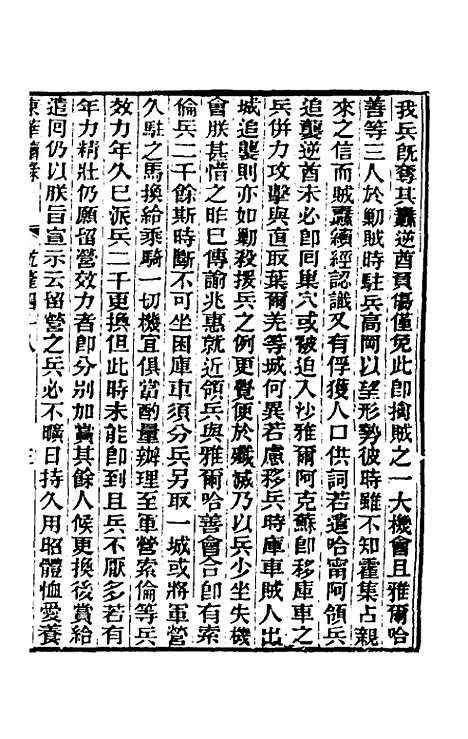 我兵既奪其纛逆酋負傷僅免此卽擒賊之一大機會且雅爾哈
善等三人於勦賊時駐兵高岡以望形勢彼時雖不知霍集占親
來之信而賊纛續經認識又有俘獲人口供詞若遣哈寗阿領兵
追襲逆酋未必卽囘巢穴或被追入沙雅爾阿克蘇卽移庫車之
兵併力攻擊與直取葉爾羌等城何異若慮移兵時庫車賊人出
城追襲則亦如勦殺援兵之例更覺便於殲滅乃以兵少坐失機
會朕甚惜之昨已傳諭兆惠就近領兵與雅爾哈善會合卽有索
倫兵二千餘斯時斷不可坐困庫車須分兵另取一城或將軍營
久駐之馬換給乘騎一切機宜俱當酌量辦理至軍營索倫等兵
效力年久已派兵二千更換但此時未能卽到且兵不厭多若有
年力精壯仍願留營效力者卽分別加賞其餘人候更換後賞給
遣囘仍以朕旨宣示云留營之兵必不曠日持久用昭體恤愛養
東華續錄 乾隆四十八